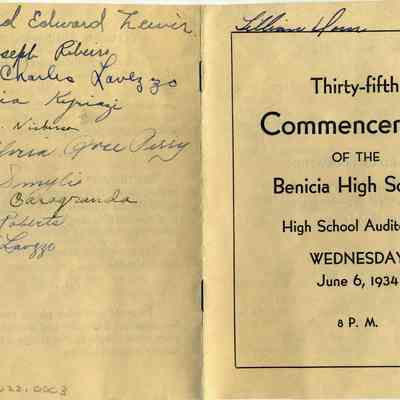 d Edward Lewis
Joseph Ribeiro
Charles Lavezzo
ia Kyriazi
Gloria Joyce Perry
Smylie
Roberts
Lavezzo
022.0003
Lillian
Thirty-fifth
Commencem
OF THE
Benicia High Sc
High School Audito
WEDNESDAY
June 6, 1934
8 P. M.